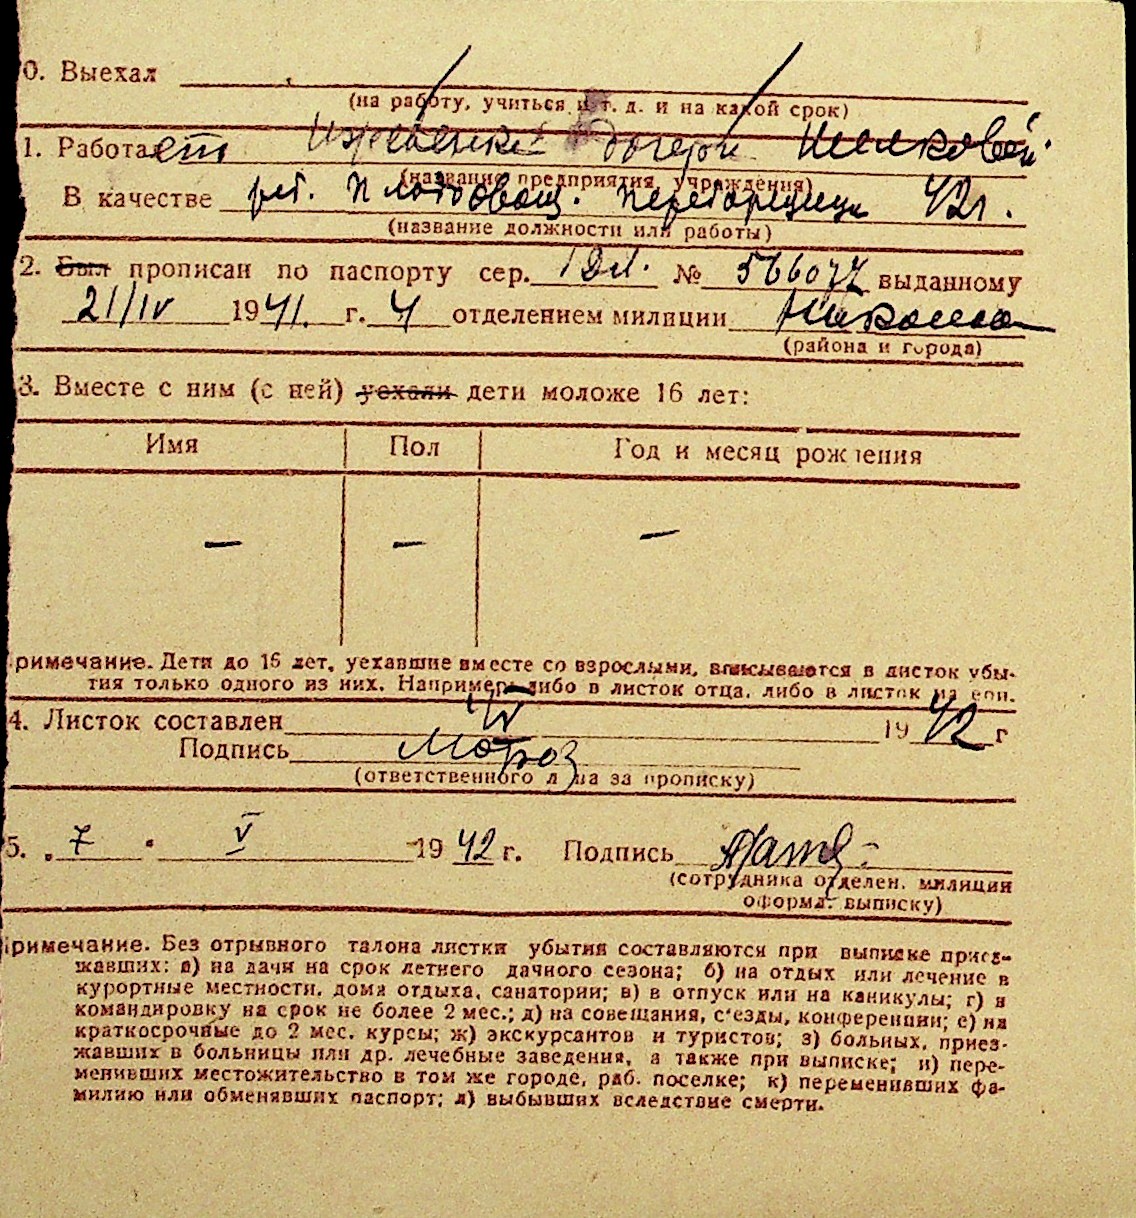 0. Выехал
(на работу, учиться и т. д. и на какой срок)
1. Работает дочери Шелковой
(название предприятия, учреждения)
В качестве 42г.
(название должности или работы)
2. Был прописан по паспорту сер. № 566077 выданному
21/IV 1941. г. 4 отделением милиции
(района и города)
3. Вместе с ним (с ней) уехали дети моложе 16 лет:
Имя Пол Год и месяц рождения
— — —
римечание. Дети до 16 лет, уехавшие вместе со взрослыми, вписываются в листок убы-
тия только одного из них. Например: либо в листок отца, либо в листок ма ери.
4. Листок составлен IV 1942 г
Подпись Мороз
(ответственного лица за прописку)
5. „7 " V 1942 г. Подпись
(сотрудника отделен. милиции
оформл. выписку)
римечание. Без отрывного талона листки убытия составляются при выписке приез-
жавших: а) на дачи на срок летнего дачного сезона; б) на отдых или лечение в
курортные местности, дома отдыха, санатории; в) в отпуск или на каникулы; г) в
командировку на срок не более 2 мес.; д) на совещания, с'езды, конференции; е) на
краткосрочные до 2 мес. курсы; ж) экскурсантов и туристов; з) больных, приез-
жавших в больницы или др. лечебные заведения, а также при выписке; и) пере-
менивших местожительство в том же городе, раб. поселке; к) переменивших фа-
милию или обменявших паспорт; л) выбывших вследствие смерти.